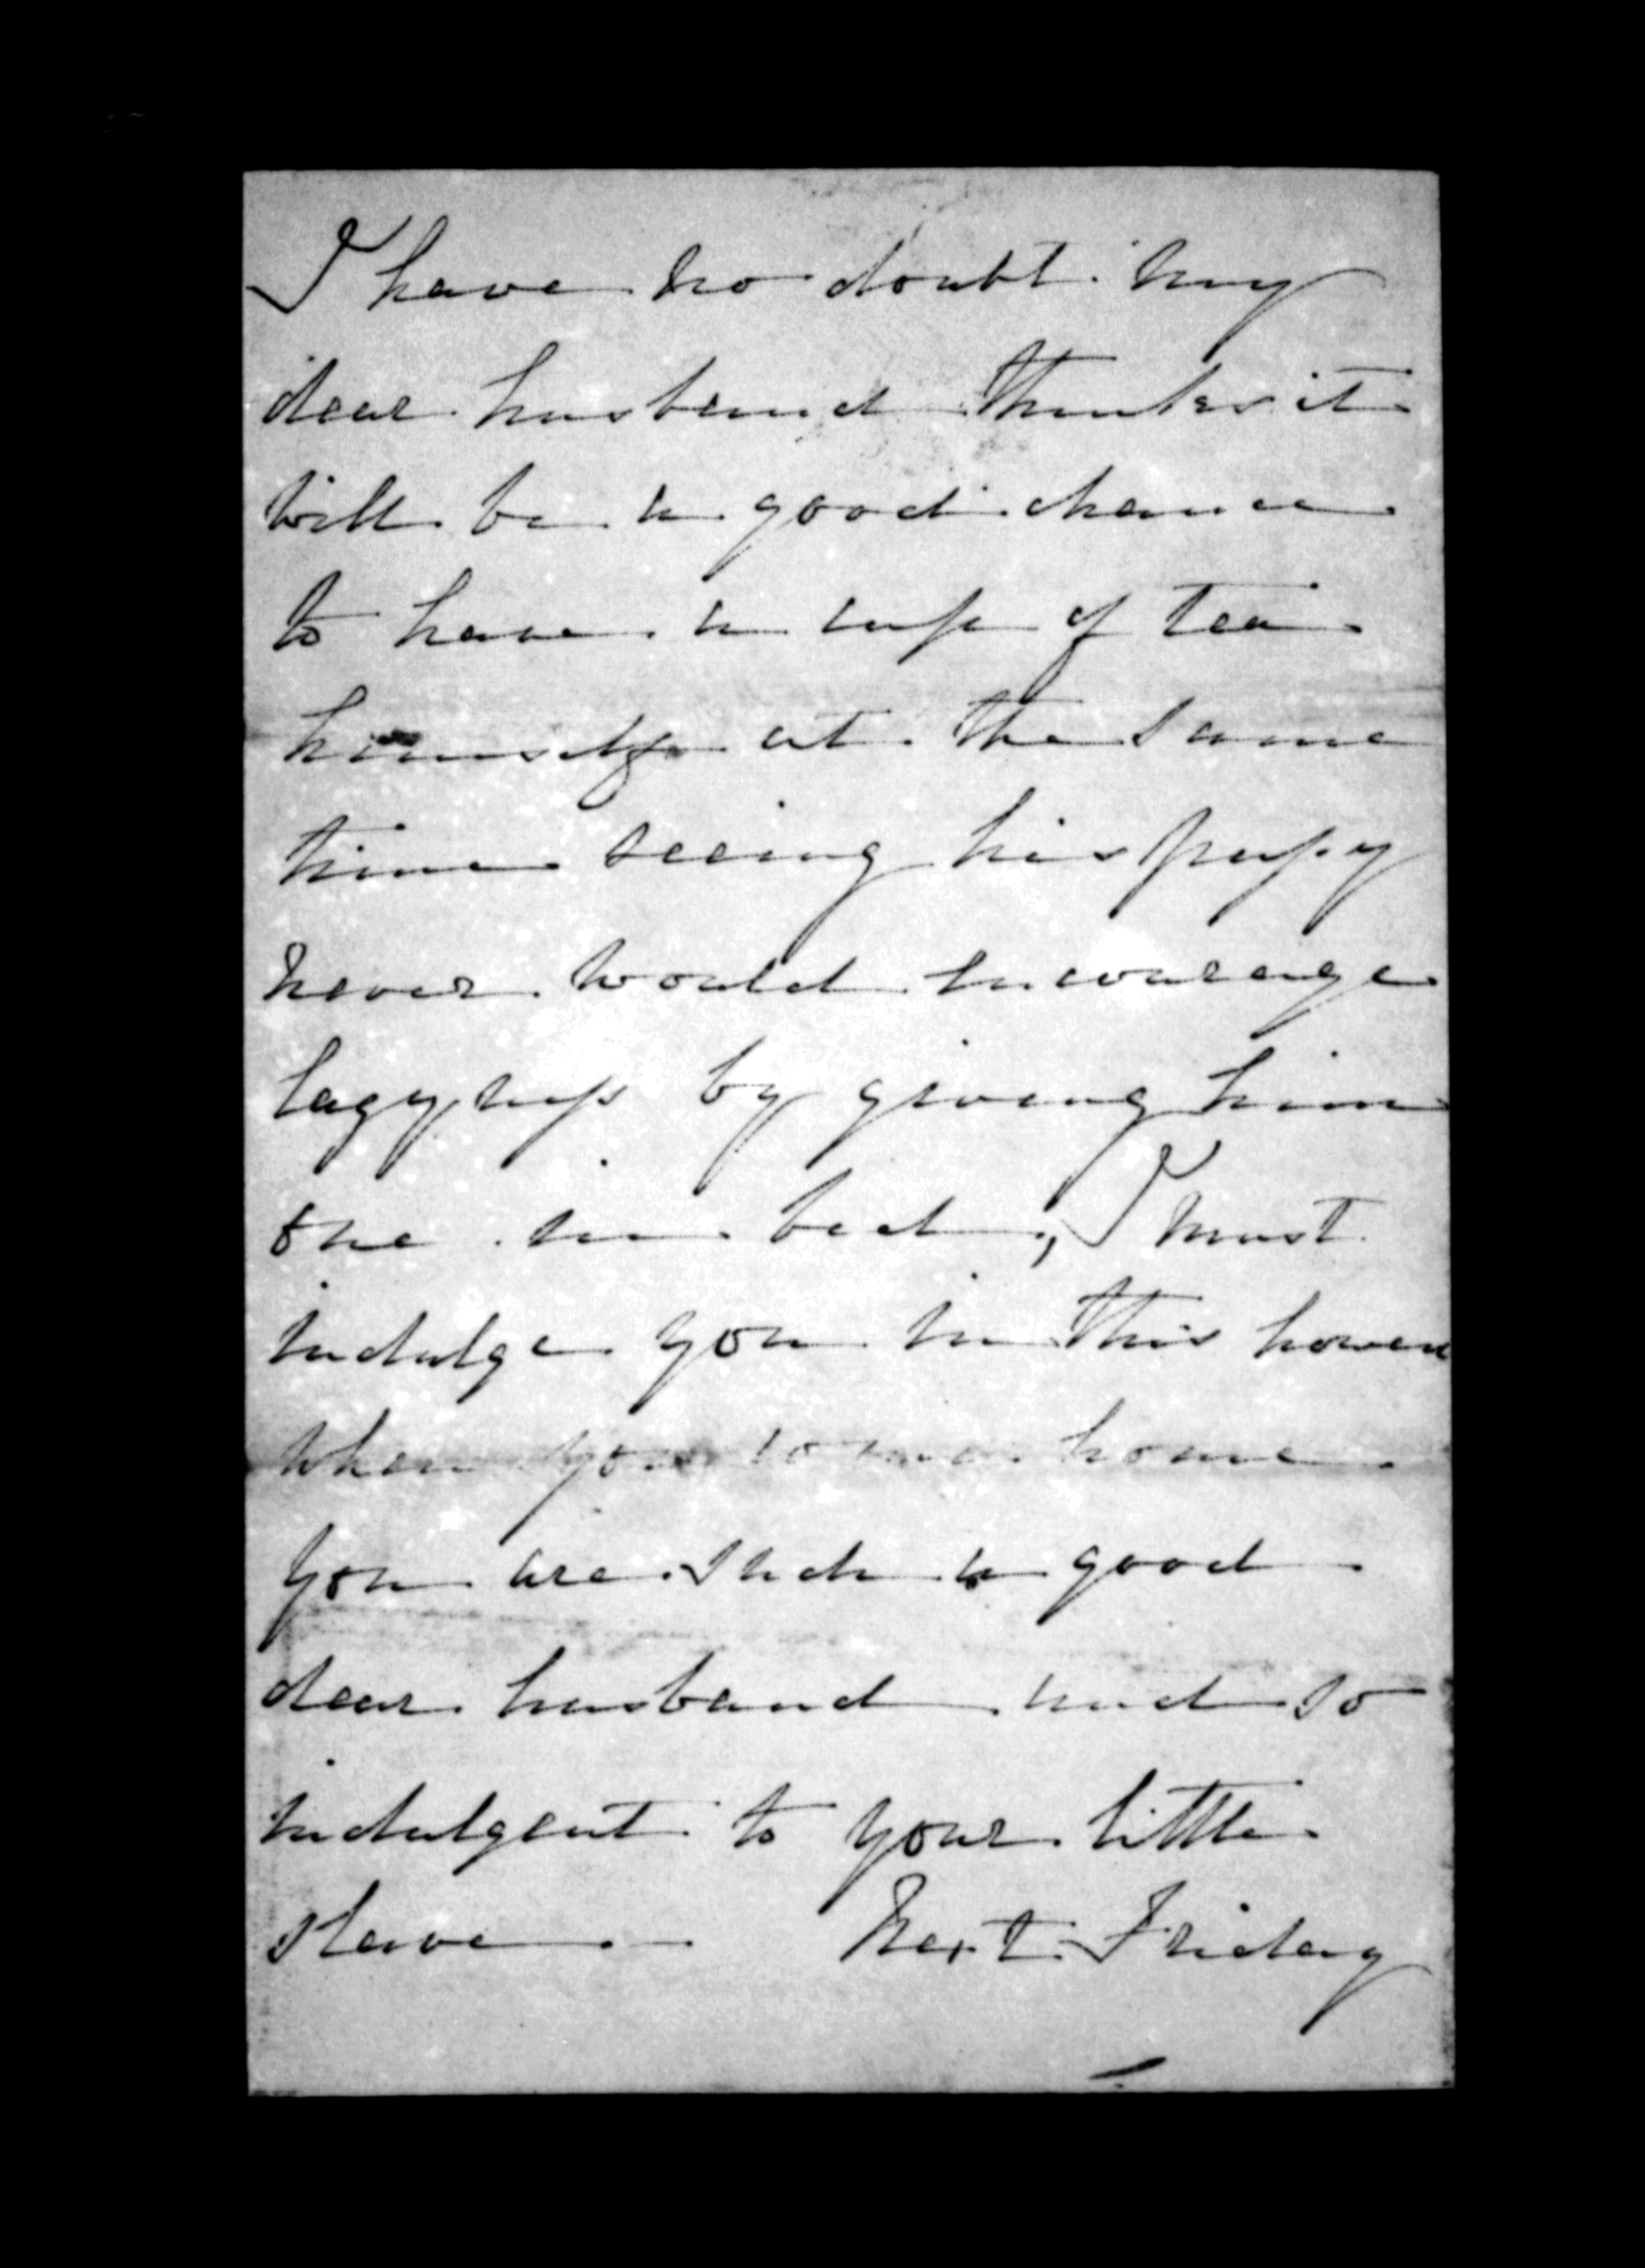 I have no doubt my
dear husband thinks it
will be a good chance
to have a cup of tea
himself at the same
time seeing his pupy
never would encourage
lazy by giving him
one in bed, I must
indulge you in this
when you come home
you are such a good
dear husband and so
indulgent to your little
slave Next Friday